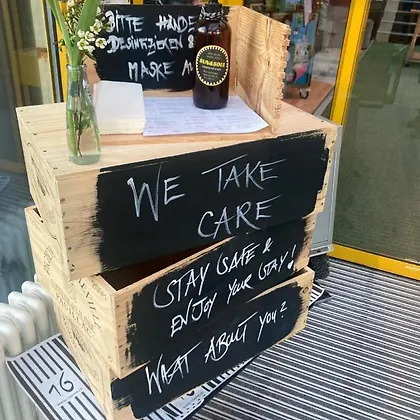 BITTE HÄNDE
DESINFIZIEREN &
MASKE AU
WE TAKE
CARE
STAY SAFE &
ENJOY YOUR STAY!
WHAT ABOUT YOU?
16